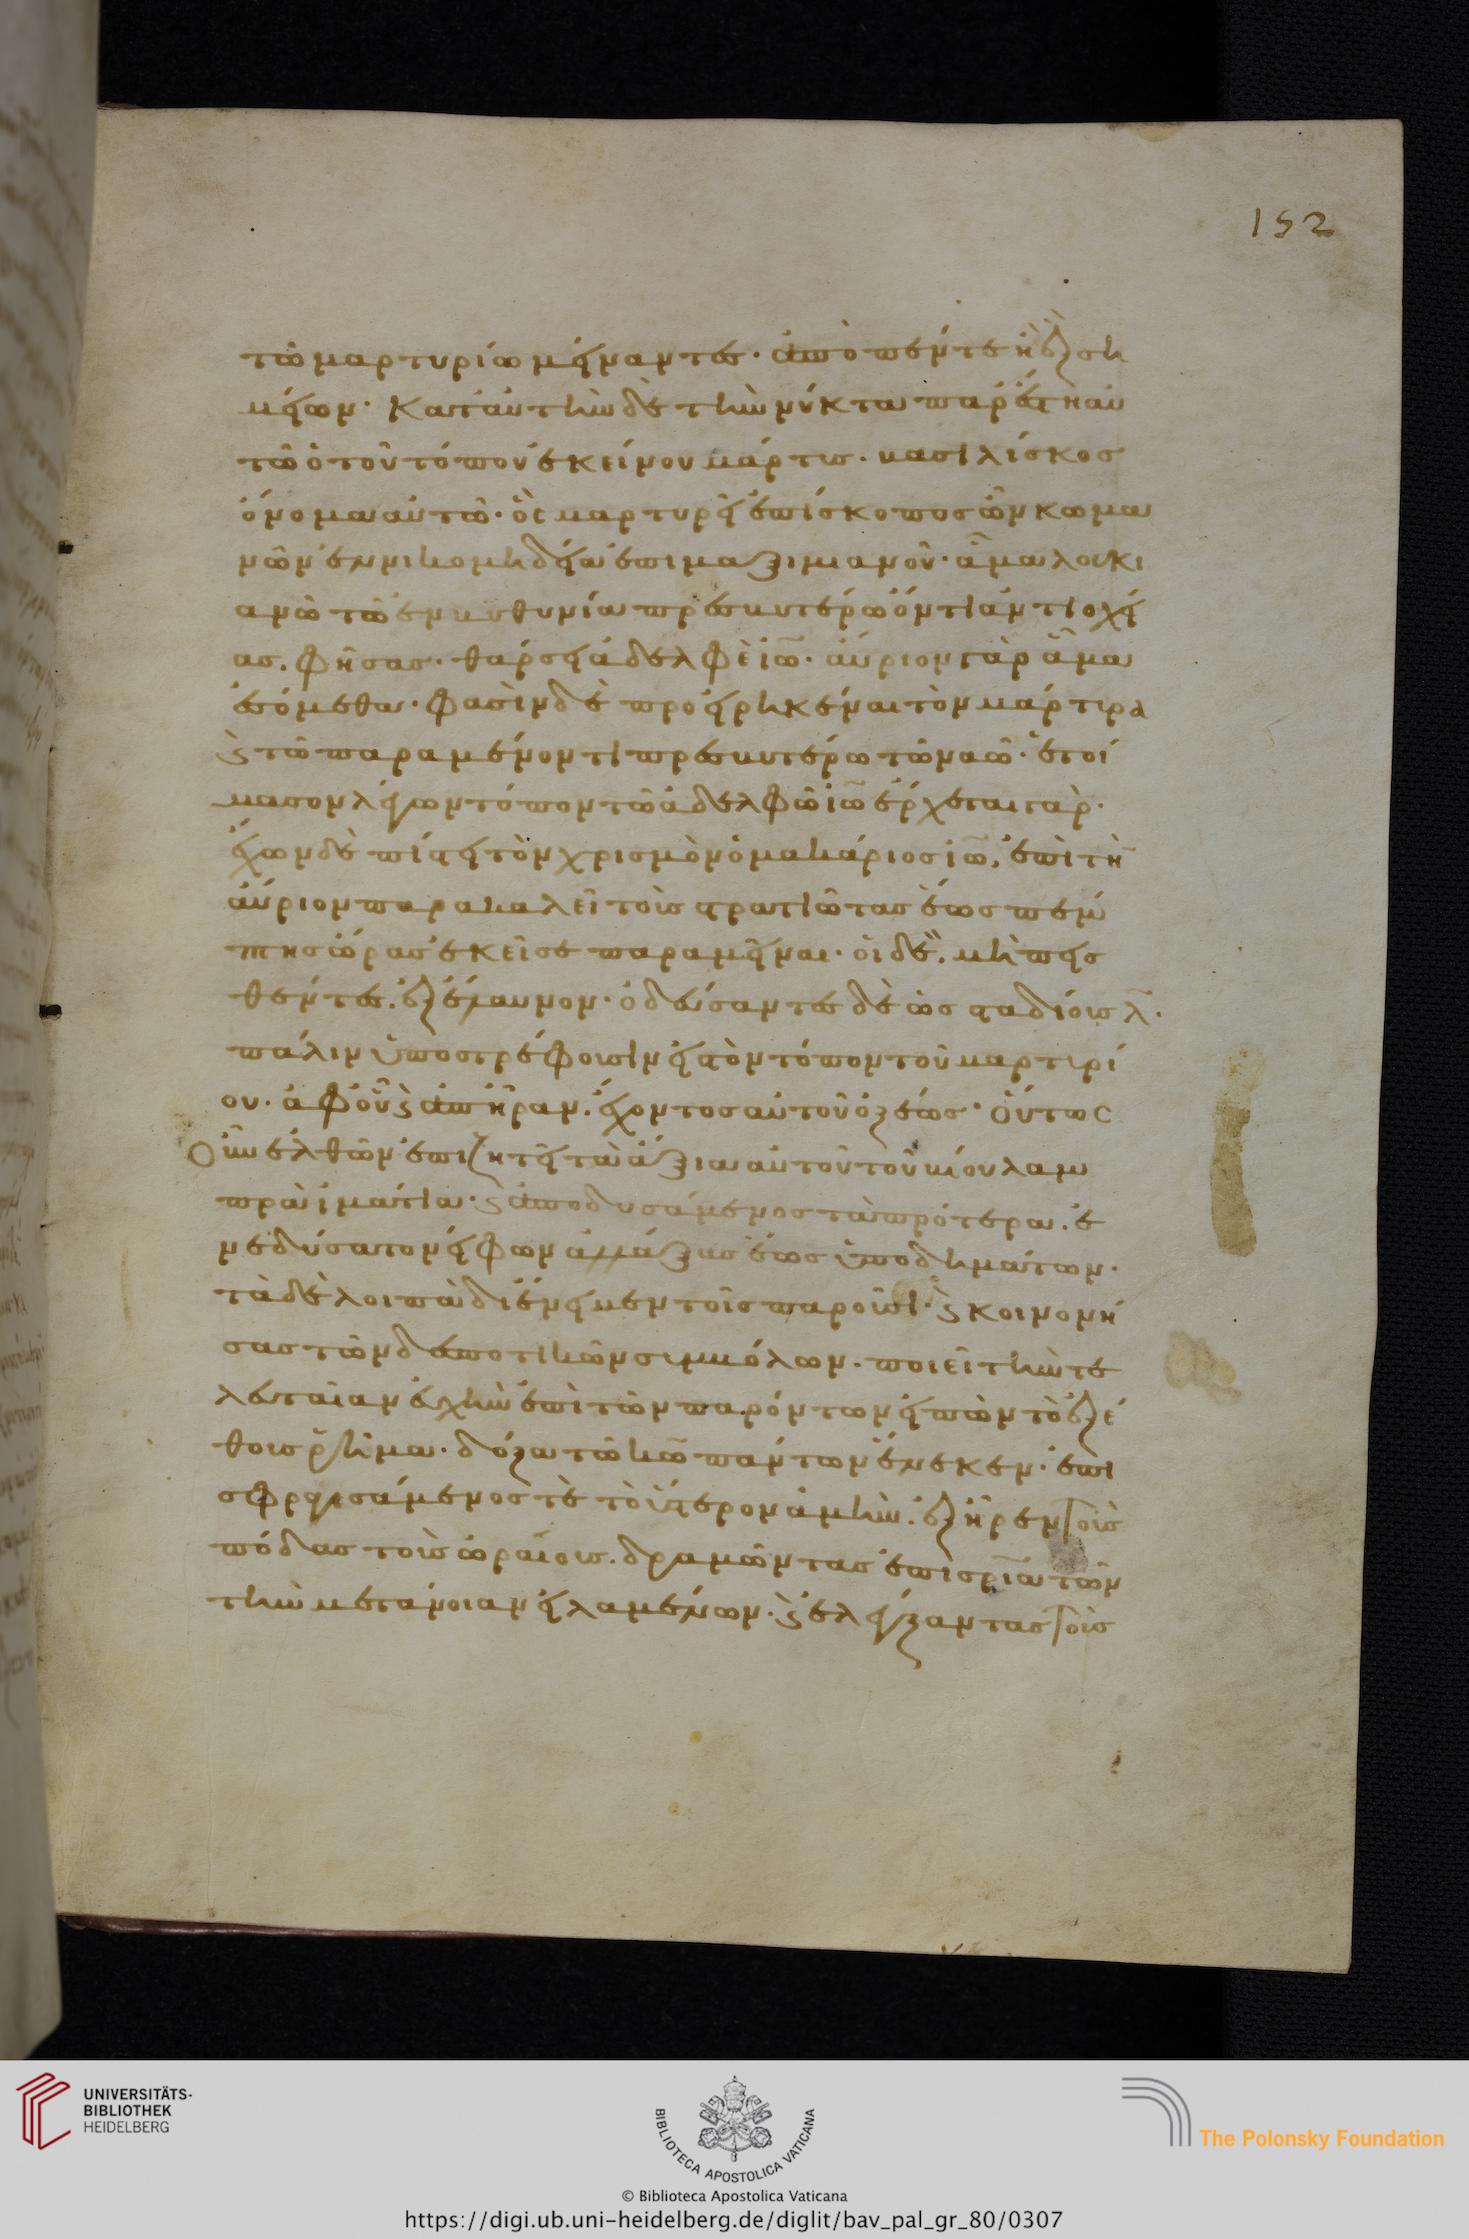 152
τῶ μαρτυρίω μείναντες· ἀπὸ πέντε ἢ ἓξ ση
μείων· Κατ' αὐτὴν δὲ τὴν νύκτα παρέστη αὐ
τῶ ὁ τοῦ τόπου ἐκείνου μάρτυς· βασιλίσκος
ὄνομα αὐτῶ· ὃς μαρτυρεῖ ἐπίσκοπος ὢν κωμα
νῶν ἐν νικομηδεία ἐπὶ μαξιμιανοῦ· ἅμα λουκι
ανῶ τῶ ἐν βυθυνία πρεσβυτέρω ὄντι ἀντιοχεί
ας. φήσας· θάρσει ἀδελφὲ ἰῶ· αὔριον γὰρ ἅμα
ἐσόμεθα· φασὶν δὲ προειρηκέναι τὸν μάρτυρα
ϗ τῶ παραμένοντι πρεσβυτέρω τῶ ναῶ· ἑτοί
μασον λέγων τόπον τῶ ἀδελφῶ ἰῶ ἔρχεται γὰρ·
ἔχων δὲ πίστει τὸν χρισμὸν ὁ μακάριος ἰῶ, ἐπὶ τὴ
αὔριον παρακαλεῖ τοὺς στρατιώτας ἕως πέμ
πτης ὥρας ἐκεῖσε παραμεῖναι· οἱ δὲ, μὴ πεισ
θέντες. ἐξέλαυνον· ὁδεύσαντες δὲ ὡς σταδίους λ·
πάλιν ὑποστρέφουσιν εἰς τὸν τόπον τοῦ μαρτυρί
ου· ἀφ' οὗ ϗ ἀπῆραν. ἔχοντος αὐτοῦ ὀξέως· Οὕτως
οὖν ἐλθὼν ἐπιζητεῖ τὰ ἄξια αὐτοῦ τοῦ βίου λαμ
πρὰ ἱμάτια· ϗ ἀποδυσάμενος τὰ πρότερα. ἐ
νεδύσατο νήφων ἀλλάξας ἕως ὑποδημάτων·
τὰ δὲ λοιπὰ διένειμεν τοῖς παροῦσι· ϗ κοινωνή
σας τῶν δεσποτικῶν συμβόλων. ποιεῖ τὴν τε
λευταίαν εὐχὴν ἐπὶ τῶν παρόντων εἰπὼν τὸ ἐξ ἔ
θους ῥῆμα· δόξα τῶ θῶ πάντων ἕνεκεν· ἐπι
σφραγισάμενός τε τὸ ὕστερον ἀμήν. ἐξῆρεν τοὺς
πόδας τοὺς ὡραίους. δραμόντας ἐπὶ σρία τῶν
τὴν μετάνοιαν εἱλαμένων· ϗ ἐλέγξαντας τοὺς
UNIVERSITÄTS-
BIBLIOTHEK
HEIDELBERG
BIBLIOTECA APOSTOLICA VATICANA
The Polonsky Foundation
© Biblioteca Apostolica Vaticana
https://digi.ub.uni-heidelberg.de/diglit/bav_pal_gr_80/0307